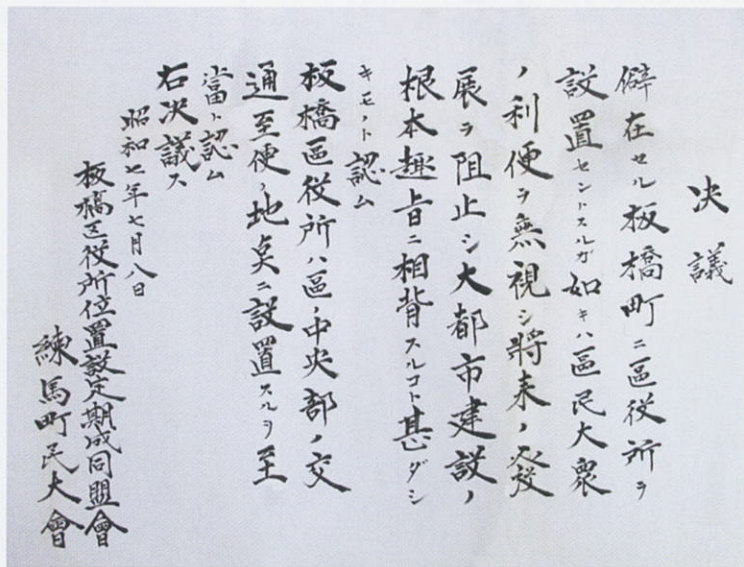 決議
僻在セル板橋町ニ區役所ヲ
設置セントスルガ如キハ區民大衆
ノ利便ヲ無視シ將来ノ発
展ヲ阻止シ大都市建設ノ
根本趣旨ニ相背スルコト甚ダシ
キモノト認ム
板橋區役所ハ區ノ中央部ノ交
通至便ノ地点ニ設置スルヲ至
當ト認ム
右決議ス
昭和七年七月八日
板橋区役所位置設定期成同盟會
練馬町民大會